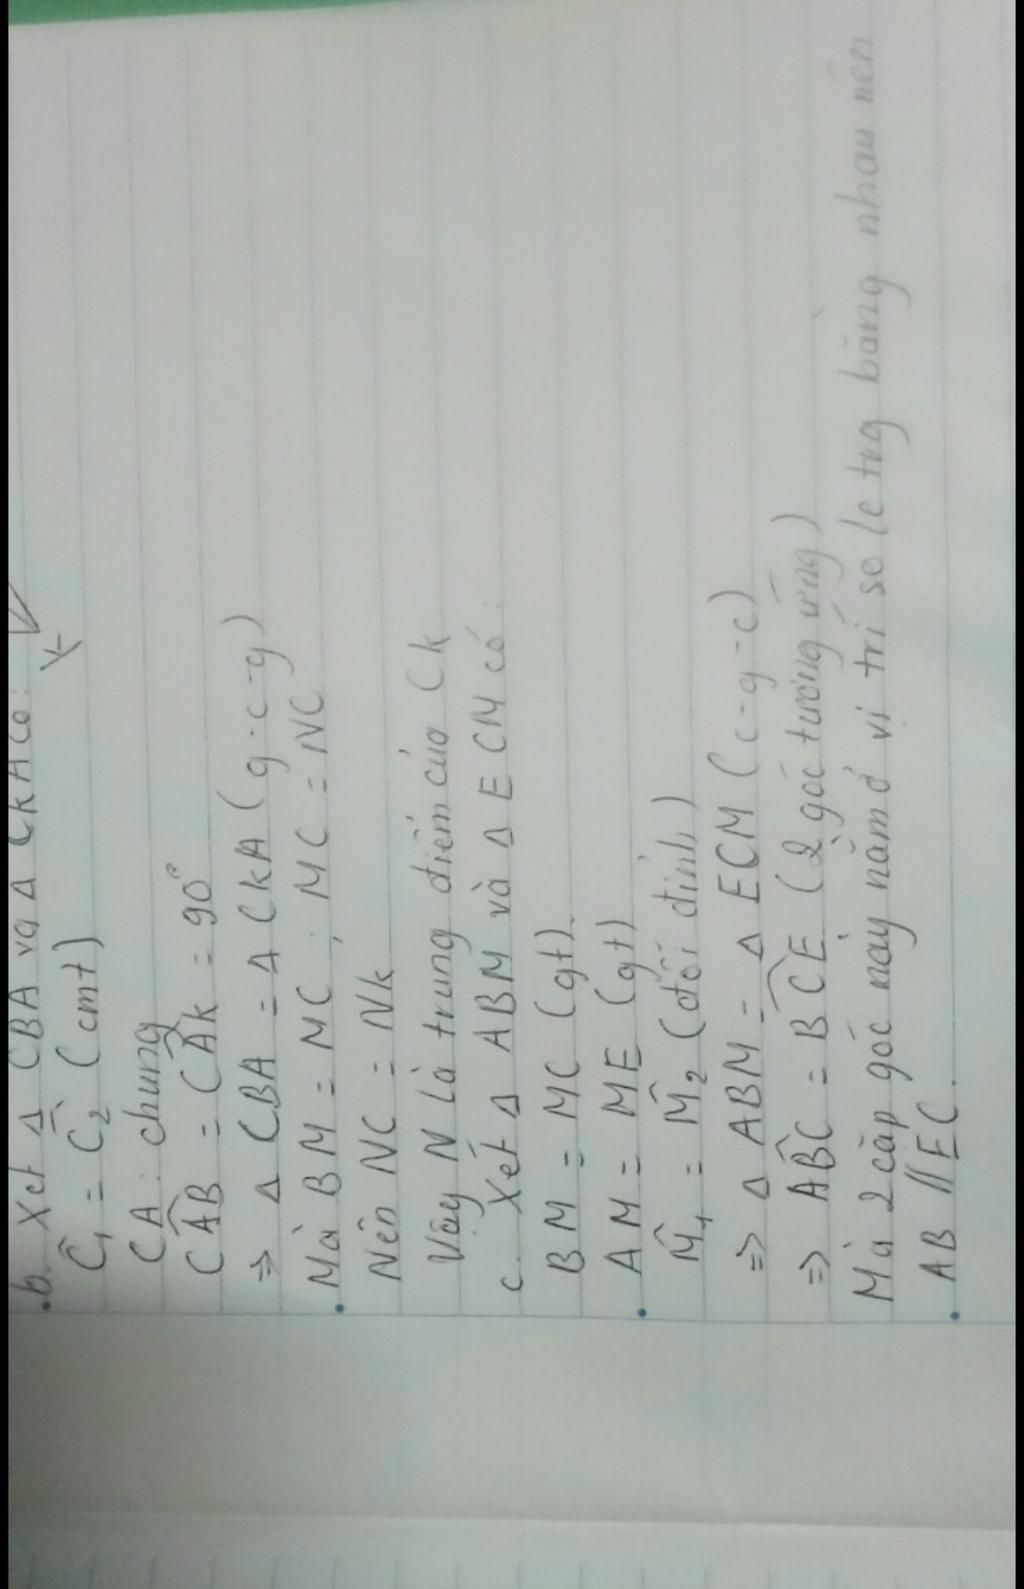 b. Xét Δ CBA và Δ CkA có:
k
Ĉ₁ = Ĉ₂ (cmt)
CA: chung
CÂB = CÂk = 90°
⇒ Δ CBA = Δ CkA (g-c-g)
Mà BM = MC; MC = NC
Nên NC = Nk
Vậy N là trung điểm của Ck
c. Xét Δ ABM và Δ ECM có:
BM = MC (gt)
AM = ME (gt)
M̂₁ = M̂₂ (đối đỉnh)
⇒ Δ ABM = Δ ECM (c-g-c)
⇒ AB̂C = BĈE (2 góc tương ứng)
Mà 2 cặp góc này nằm ở vị trí so le trg bằng nhau nên
AB // EC.